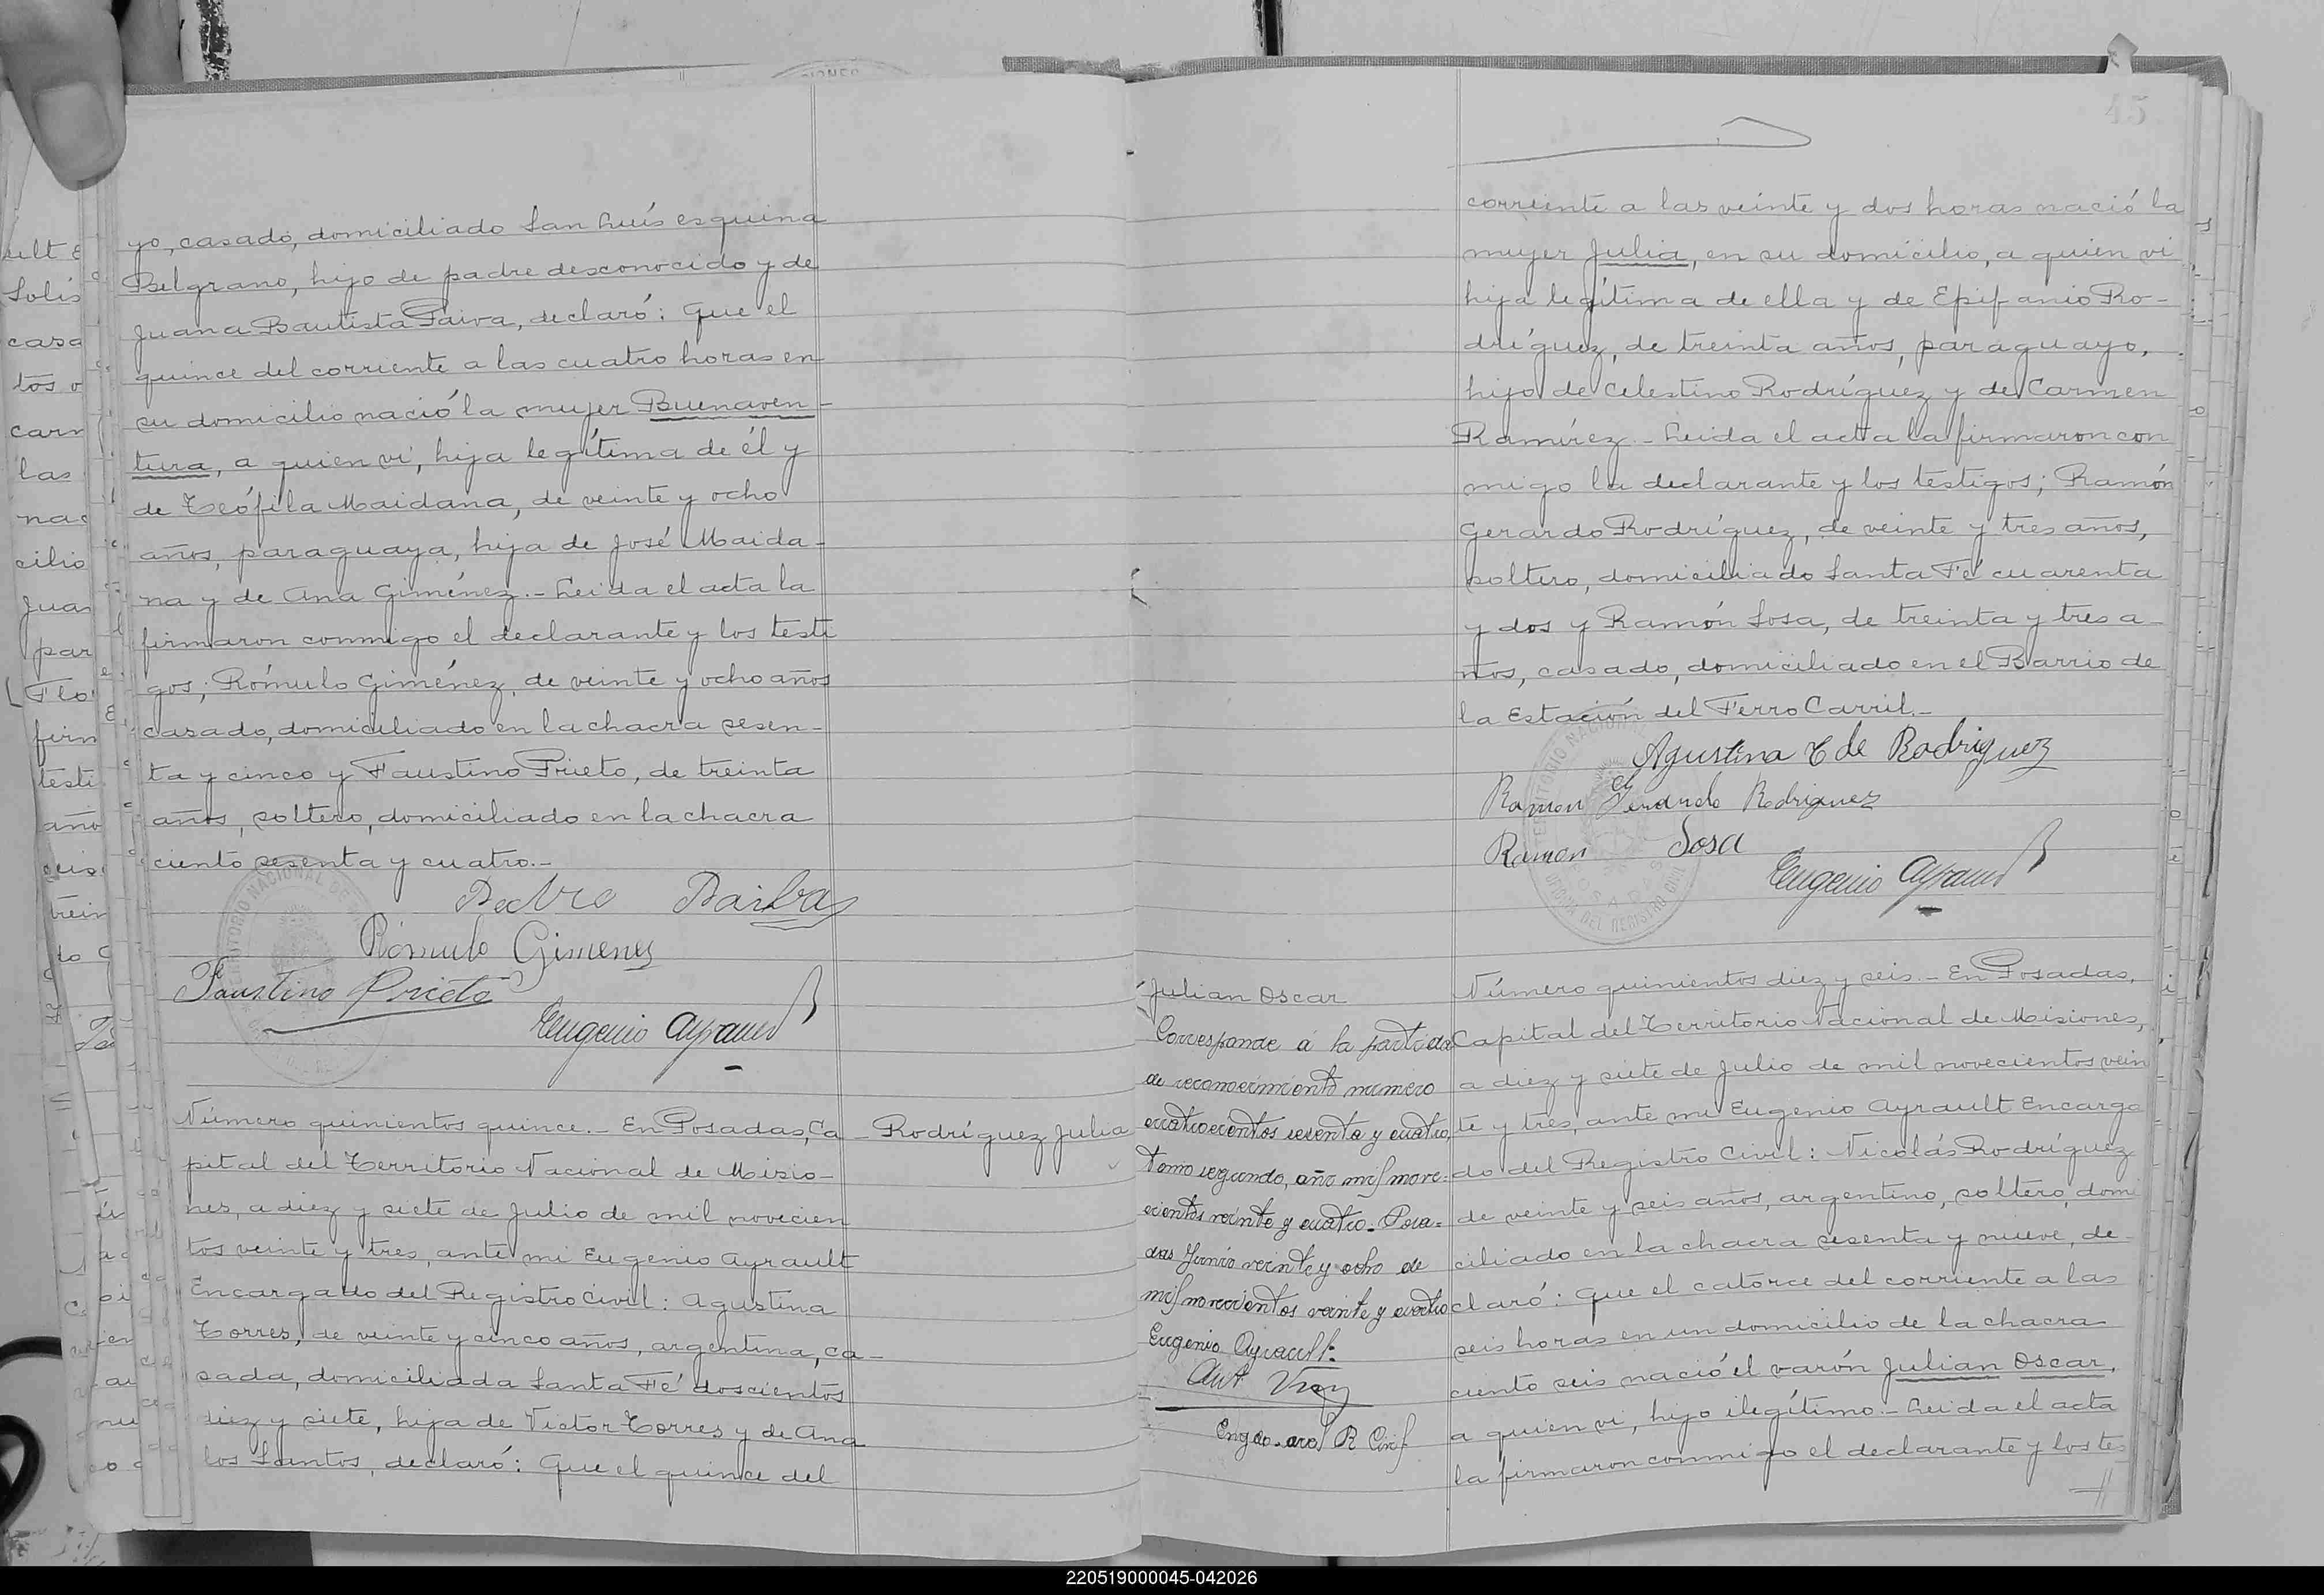 yo, casado, domiciliado San Luís esquina
Belgrano, hijo de padre desconocido y de
Juana Bautista Paiva, declaró: Que el
quince del corriente a las cuatro horas en
su domicilio nació la mujer Buenaven-
tura, a quien vi, hija legítima de él y
de Teófila Maidana, de veinte y ocho
años, paraguaya, hija de José Maida-
na y de Ana Giménez.- Leida el acta la
firmaron conmigo el declarante y los testi
gos; Rómulo Giménez, de veinte y ocho años
casado, domiciliado en la chacra sesen-
ta y cinco y Faustino Prieto, de treinta
años, soltero, domiciliado en la chacra
ciento sesenta y cuatro.-
Pedro
Rómulo Gimenes
Faustino Prieto
Eugenio Ayrault
Número quinientos quince.- En Posadas, Ca-
pital del Territorio Nacional de Misio-
nes, a diez y siete de Julio de mil novecien
tos veinte y tres, ante mi Eugenio Ayrault
Encargado del Registro Civil: Agustina
Torres, de veinte y cinco años, argentina, ca-
sada, domiciliada Santa Fé doscientos
diez y siete, hija de Victor Torres y de Ana
los Santos, declaró: Que el quince del
Rodríguez Julia
45
corriente a las veinte y dos horas nació la
mujer Julia, en su domicilio, a quien vi
hija legítima de ella y de Epifanio Ro-
dríguez, de treinta años, paraguayo,
hijo de Celestino Rodríguez y de Carmen
Ramírez.- Leida el acta la firmaron con
migo la declarante y los testigos; Ramón
Gerardo Rodríguez, de veinte y tres años,
soltero, domiciliado Santa Fé cuarenta
y dos y Ramón Sosa, de treinta y tres a-
ños, casado, domiciliado en el Barrio de
la Estación del Ferro Carril.-
Agustina T de Rodriguez
Ramon Gerardo Rodriguez
Ramon Sosa
Eugenio Ayrault
Julian Oscar
Corresponde á la partida
de reconocimiento número
cuatrocientos sesenta y cuatro,
tomo segundo, año mil nove-
cientos veinte y cuatro.- Posa-
das Junio veinte y ocho de
mil novecientos veinte y cuatro
Eugenio Ayrault
Engdo. del R. Civil
Número quinientos diez y seis.- En Posadas,
Capital del Territorio Nacional de Misiones,
a diez y siete de Julio de mil novecientos vein
te y tres, ante mi Eugenio Ayrault Encarga
do del Registro Civil: Nicolás Rodríguez
de veinte y seis años, argentino, soltero, domi
ciliado en la chacra sesenta y nueve, de-
claró: Que el catorce del corriente a las
seis horas en un domicilio de la chacra
ciento seis nació el varón Julian Oscar,
a quien vi, hijo ilegítimo.- Leida el acta
la firmaron conmigo el declarante y los tes
220519000045-042026